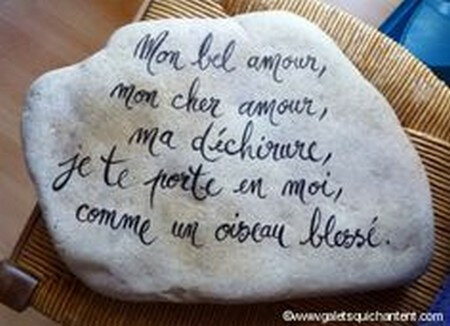 Mon bel amour,
mon cher amour,
ma déchirure,
je te porte en moi,
comme un oiseau blessé.
©www.galetsquichantent.com